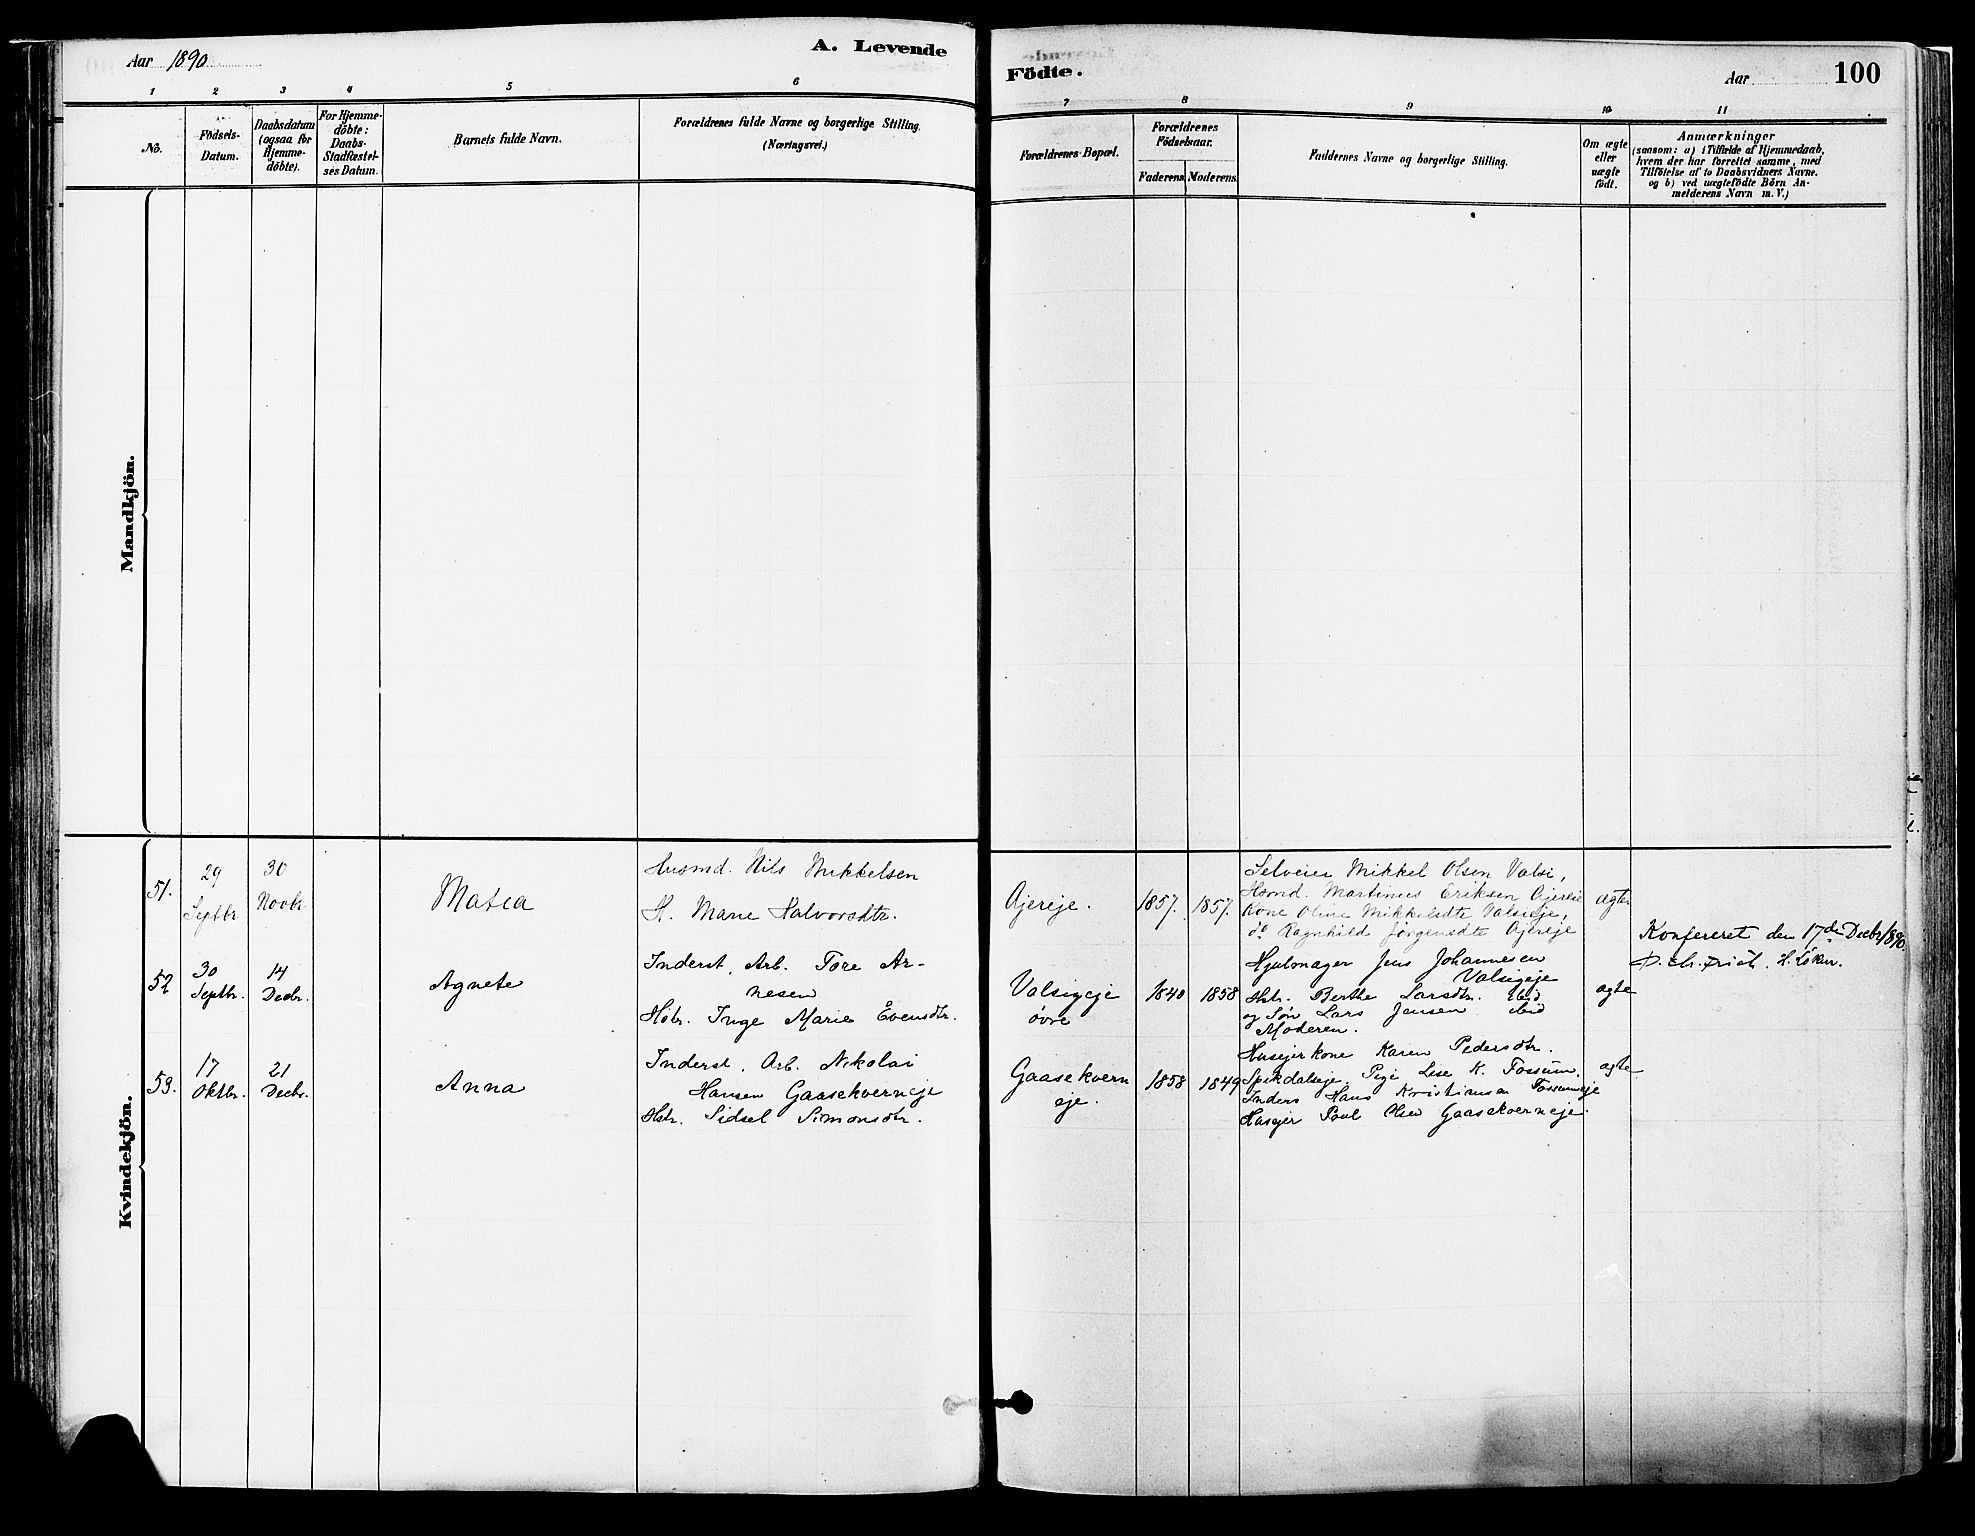 Aar 1890
A. Levende
Födte.
Aar
100
1 2 3 4 5 6 7 8 9 10 11
No.
Födsels-
Datum.
Daabsdatum
(ogsaa for
Hjemme-
döbte).
For Hjemme-
döbte:
Daabs-
Stadfæstel-
ses Datum.
Barnets fulde Navn.
Forældrenes fulde Navne og borgerlige Stilling.
(Næringsvei.)
Forældrenes Bopæl.
Forældrenes
Födselsaar.
Faderens. Moderens.
Faddernes Navne og borgerlige Stilling.
Om ægte
eller
uægte
födt.
Anmærkninger
(saasom: a) i Tilfælde af Hjemmedaab,
hvem der har forrettet samme, med
Tilföielse af to Daabsvidners Navne.
og b) ved uægtefödte Börn An-
melderens Navn m. V.)
Mandkjön.
Kvindekjön.
51.
29
Septbr.
30
Novbr.
Matea
Husmd. Nils Mikkelsen
H. Marie Halvorsdtr.
Ajereje.
1857.
1857.
Selveier Mikkel Olsen Valsi,
Hsmd. Martinus Eriksen Ajereie
Kone Oline Mikkelsdtr Valsieje,
do Ragnhild Jørgensdtr Ajereje
ægte
Konfereret den 17de Decbr 1890
H. Löken.
52
30
Septbr.
14
Decbr.
Agnete
Inderst, Arb. Tore Ar-
nesen
Hstr. Inge Marie Evensdtr.
Valsigeje
øvre
1840
1858
Hjulmager Jens Johannesen
Valsigeje
Hstr. Berthe Larsdtr. ibid
og Søn Lars Jensen ibid
Moderen.
ægte
53.
17
Oktbr.
21
Decbr.
Anna
Inderst, Arb. Nikolai
Hansen Gaasekverneje
Hstr. Sidsel Simonsdtr.
Gaasekvern
eje.
1858
1849
Husejerkone Karen Pedersdtr.
Spikdalseje, Pige Lise K. Fossum,
Inders Hans Kristiansen Fossumeje
Husejer Poul Olsen Gaasekverneje.
ægte